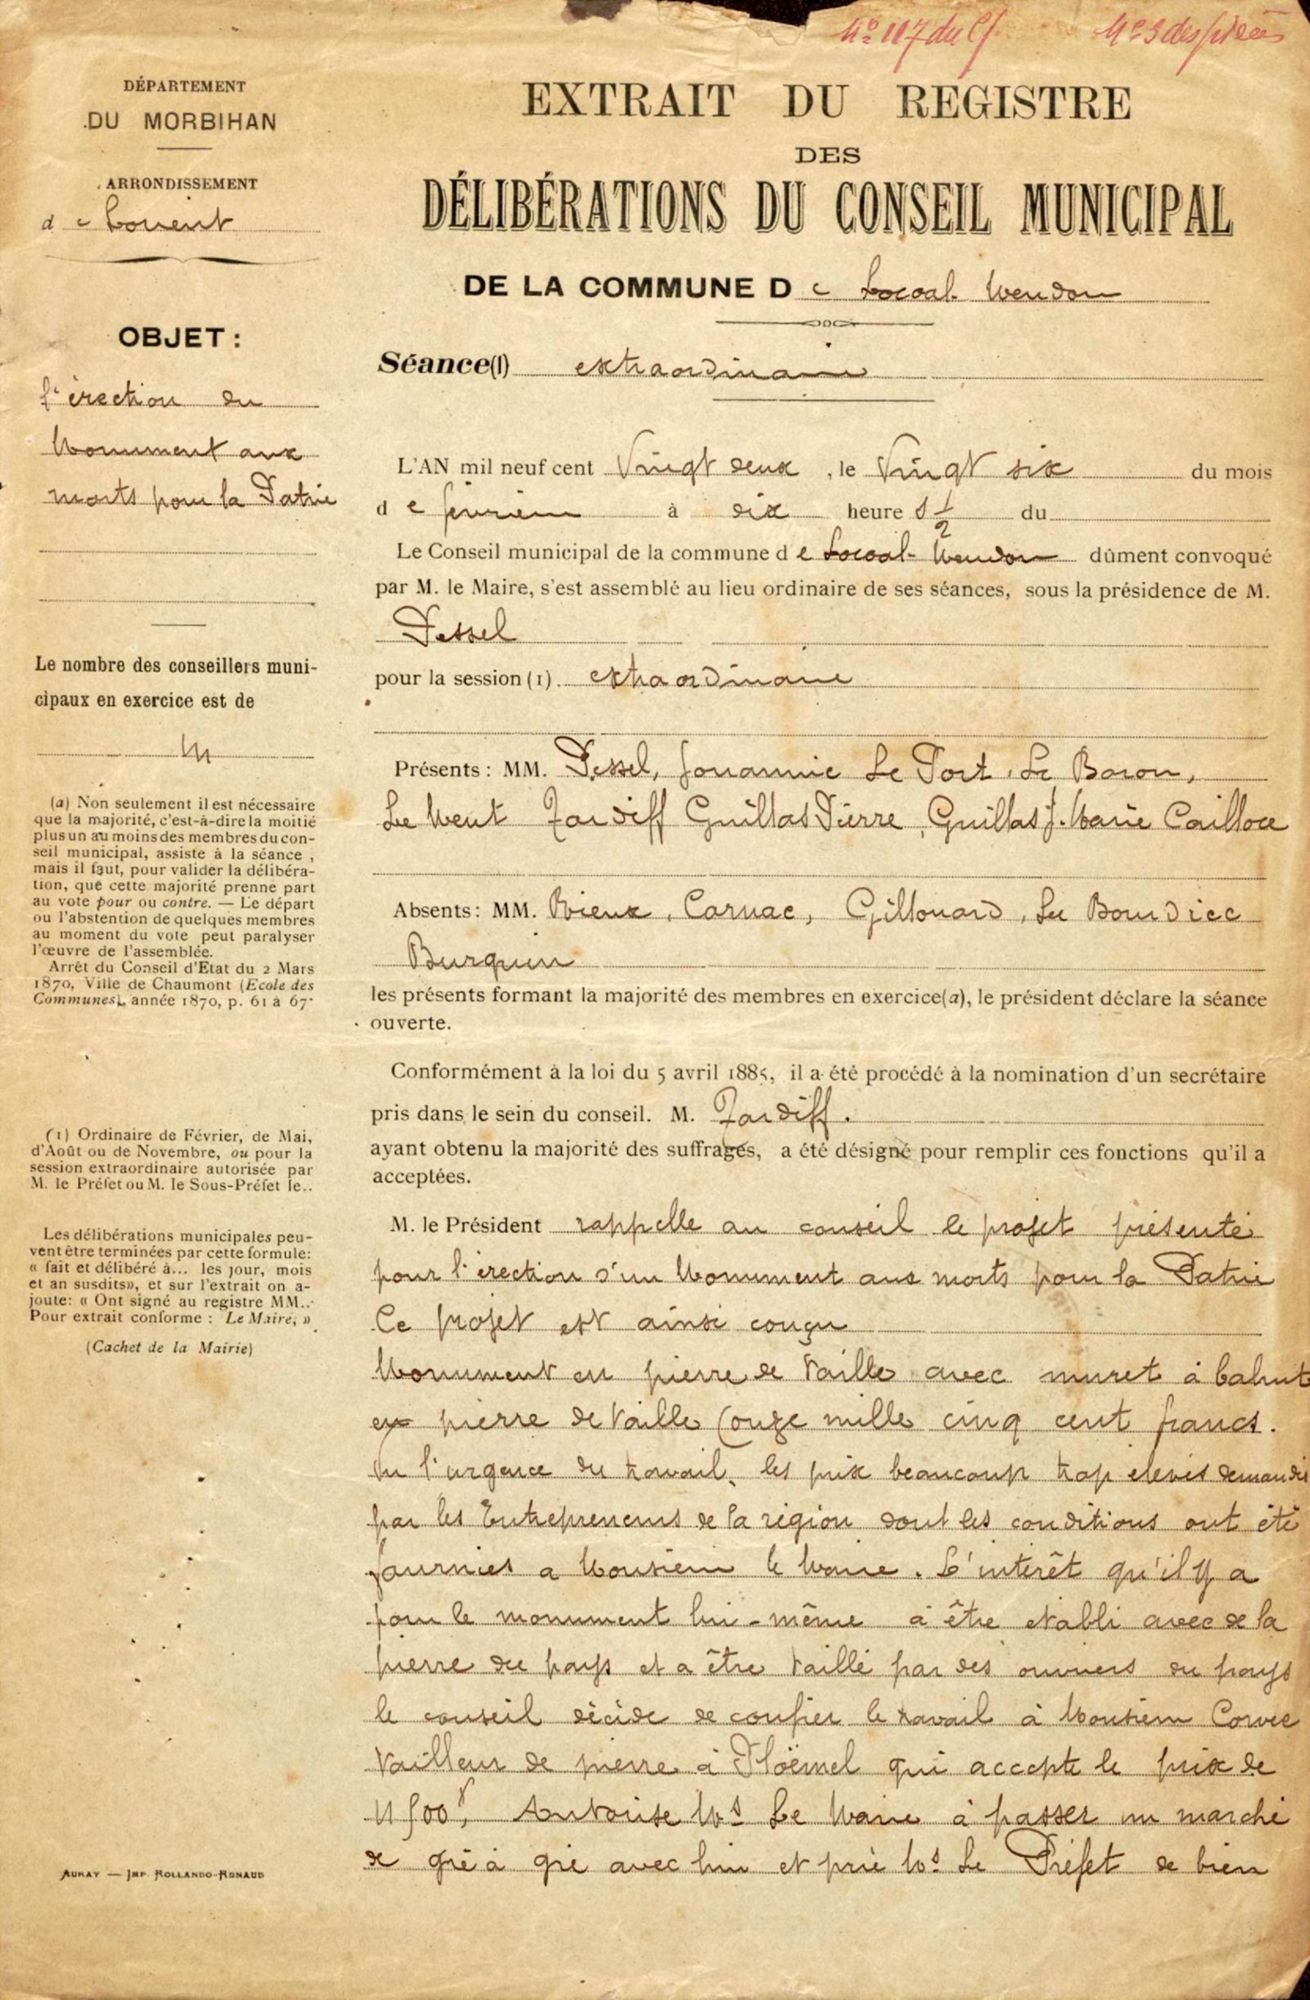 Nº 117 du Cf
Nº 3 des pièces
DÉPARTEMENT
DU MORBIHAN
ARRONDISSEMENT
d e Lorient
EXTRAIT DU REGISTRE
DES
DÉLIBÉRATIONS DU CONSEIL MUNICIPAL
DE LA COMMUNE D e Locoal-Mendon
OBJET :
l'érection du
Monument aux
morts pour la Patrie
Le nombre des conseillers muni-
cipaux en exercice est de
14
(a) Non seulement il est nécessaire
que la majorité, c'est-à-dire la moitié
plus un au moins des membres du con-
seil municipal, assiste à la séance ,
mais il faut, pour valider la délibéra-
tion, que cette majorité prenne part
au vote pour ou contre. — Le départ
ou l'abstention de quelques membres
au moment du vote peut paralyser
l'œuvre de l'assemblée.
Arrêt du Conseil d'Etat du 2 Mars
1870, Ville de Chaumont (Ecole des
Communes, année 1870, p. 61 à 67.
(1) Ordinaire de Février, de Mai,
d'Août ou de Novembre, ou pour la
session extraordinaire autorisée par
M. le Préfet ou M. le Sous-Préfet le..
Les délibérations municipales peu-
vent être terminées par cette formule:
« fait et délibéré à... les jour, mois
et an susdits», et sur l'extrait on a-
joute: « Ont signé au registre MM...
Pour extrait conforme : Le Maire, »
(Cachet de la Mairie)
AURAY — IMP. ROLLANDO-RONAUD
Séance(1) extraordinaire
L'AN mil neuf cent Vingt deux , le Vingt six du mois
d e février à dix heure s 1/2 du
Le Conseil municipal de la commune d e Locoal-Mendon dûment convoqué
par M. le Maire, s'est assemblé au lieu ordinaire de ses séances, sous la présidence de M.
Pessel
pour la session (1) extraordinaire
Présents : MM. Pessel, Jouannic Le Port, Le Baron,
Le Ment Tardiff Guillas Pierre, Guillas J. Marie Cailloce
Absents : MM. Rieux, Carnac, Gillouard, Le Bourdiec
Burquin
les présents formant la majorité des membres en exercice(a), le président déclare la séance
ouverte.
Conformément à la loi du 5 avril 1885, il a été procédé à la nomination d'un secrétaire
pris dans le sein du conseil. M. Tardiff.
ayant obtenu la majorité des suffrages, a été désigné pour remplir ces fonctions qu'il a
acceptées.
M. le Président rappelle au conseil le projet présenté
pour l'érection d'un Monument aux morts pour la Patrie
Ce projet est ainsi conçu
Monument en pierre de taille avec muret à bahut
en pierre de taille (onze mille cinq cent francs.
Vu l'urgence du travail, les prix beaucoup trop élevés demandés
par les Entrepreneurs de la région dont les conditions ont été
fournies a Monsieur le Maire. L'intérêt qu'il y a
pour le monument lui-même à être établi avec de la
pierre du pays et a être taillé par des ouvriers du pays
le conseil décide de confier le travail à Monsieur Corvec
tailleur de pierre à Ploëmel qui accepte le prix de
11500f, Autorise Mr Le Maire à passer un marché
de gré à gré avec lui et prie Mr Le Préfet de bien